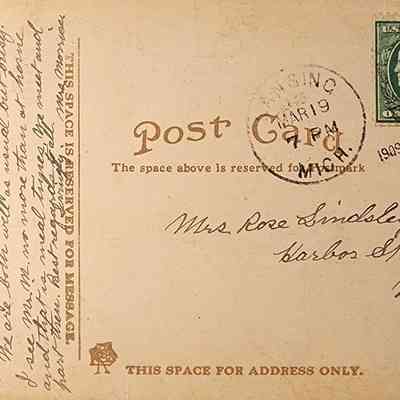 We are both well as usual but busy.
I see Mr. M. no more than at home
and that is meal times. We meet and
part then. Best regards to all.
THIS SPACE IS RESERVED FOR MESSAGE.
LANSING
MAR 19
7 PM
MICH.
1909
U.S.
Post Card
The space above is reserved for Postmark
Mrs Rose Lindsle
Harbor Sp
THIS SPACE FOR ADDRESS ONLY.